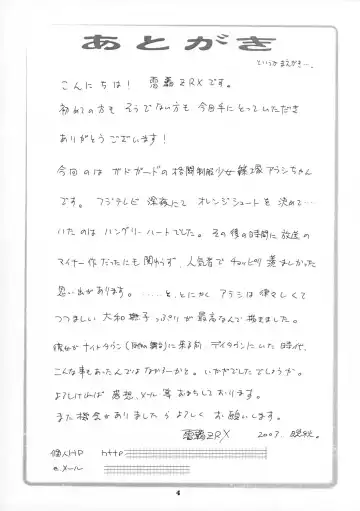 あとがき
というか まえがき…。
こんにちは! 雷轟ZRXです。
初めての方も そうでない方も 今日手にとっていただき
ありがとうございます!
今回のは ガドガードの格闘制服少女 篠塚アラシちゃん
です。 フジテレビ 深夜にて オレンジシュートを 決めて…
いたのは ハングリーハートでした。 その後の時間に放送の
マイナー作だったにも関わらず、人気者で チョッピリ 羨ましかった
思い出があります。 ……と、とにかく アラシは 凛々しくて
つつましい 大和撫子っぷりが 最高なんで描きました。
彼女が ナイトタウン に来る前、デイタウンにいた 時代、
こんな事もあったんではなかろーかと。 いかがでしたでしょうか。
よろしければ 感想、メール 等 おまちしております。
また機会がありましたら よろしく お願いします。
雷轟ZRX 2003. 晩秋。
個人HP http
eメール
4